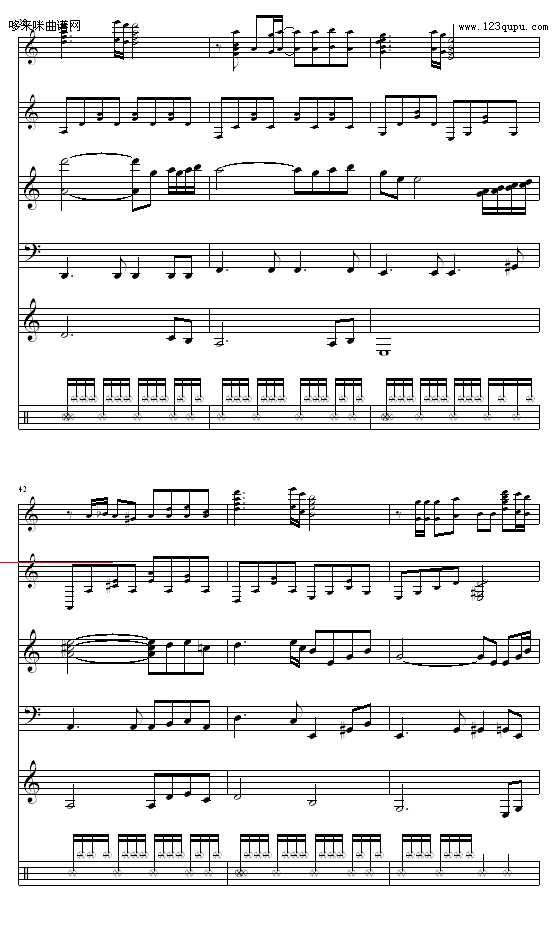 哆来咪曲谱网
www.123qupu.com
42